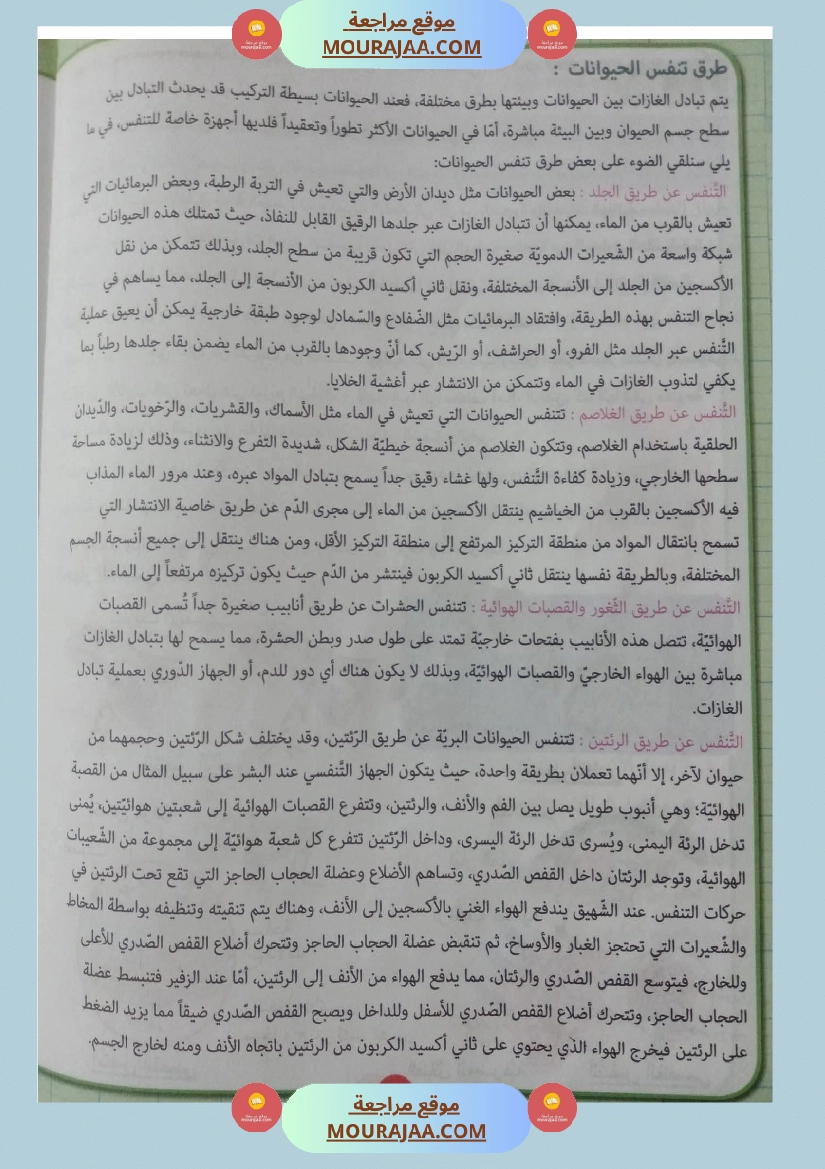 موقع مراجعة
MOURAJAA.COM
طرق تنفس الحيوانات :
يتم تبادل الغازات بين الحيوانات وبيئتها بطرق مختلفة، فعند الحيوانات بسيطة التركيب قد يحدث التبادل بين
سطح جسم الحيوان وبين البيئة مباشرة، أمّا في الحيوانات الأكثر تطوراً وتعقيداً فلديها أجهزة خاصة للتنفس، في ما
يلي سنلقي الضوء على بعض طرق تنفس الحيوانات:
التَّنفس عن طريق الجلد : بعض الحيوانات مثل ديدان الأرض والتي تعيش في التربة الرطبة، وبعض البرمائيات التي
تعيش بالقرب من الماء، يمكنها أن تتبادل الغازات عبر جلدها الرقيق القابل للنفاذ، حيث تمتلك هذه الحيوانات
شبكة واسعة من الشّعيرات الدمويّة صغيرة الحجم التي تكون قريبة من سطح الجلد، وبذلك تتمكن من نقل
الأكسجين من الجلد إلى الأنسجة المختلفة، ونقل ثاني أكسيد الكربون من الأنسجة إلى الجلد، مما يساهم في
نجاح التنفس بهذه الطريقة، وافتقاد البرمائيات مثل الضّفادع والسّمادل لوجود طبقة خارجية يمكن أن يعيق عملية
التَّنفس عبر الجلد مثل الفرو، أو الحراشف، أو الرّيش، كما أنّ وجودها بالقرب من الماء يضمن بقاء جلدها رطباً بما
يكفي لتذوب الغازات في الماء وتتمكن من الانتشار عبر أغشية الخلايا.
التَّنفس عن طريق الغلاصم : تتنفس الحيوانات التي تعيش في الماء مثل الأسماك، والقشريات، والرّخويات، والدّيدان
الحلقية باستخدام الغلاصم، وتتكون الغلاصم من أنسجة خيطيّة الشكل، شديدة التفرع والانثناء، وذلك لزيادة مساحة
سطحها الخارجي، وزيادة كفاءة التَّنفس، ولها غشاء رقيق جداً يسمح بتبادل المواد عبره، وعند مرور الماء المذاب
فيه الأكسجين بالقرب من الخياشيم ينتقل الأكسجين من الماء إلى مجرى الدّم عن طريق خاصية الانتشار التي
تسمح بانتقال المواد من منطقة التركيز المرتفع إلى منطقة التركيز الأقل، ومن هناك ينتقل إلى جميع أنسجة الجسم
المختلفة، وبالطريقة نفسها ينتقل ثاني أكسيد الكربون فينتشر من الدّم حيث يكون تركيزه مرتفعاً إلى الماء.
التَّنفس عن طريق الثّغور والقصبات الهوائية : تتنفس الحشرات عن طريق أنابيب صغيرة جداً تُسمى القصبات
الهوائيّة، تتصل هذه الأنابيب بفتحات خارجيّة تمتد على طول صدر وبطن الحشرة، مما يسمح لها بتبادل الغازات
مباشرة بين الهواء الخارجيّ والقصبات الهوائيّة، وبذلك لا يكون هناك أي دور للدم، أو الجهاز الدّوري بعملية تبادل
الغازات.
التَّنفس عن طريق الرئتين : تتنفس الحيوانات البريّة عن طريق الرّئتين، وقد يختلف شكل الرّئتين وحجمهما من
حيوان لآخر، إلا أنّهما تعملان بطريقة واحدة، حيث يتكون الجهاز التَّنفسي عند البشر على سبيل المثال من القصبة
الهوائيّة؛ وهي أنبوب طويل يصل بين الفم والأنف، والرئتين، وتتفرع القصبات الهوائية إلى شعبتين هوائيّتين، يُمنى
تدخل الرئة اليمنى، ويُسرى تدخل الرئة اليسرى، وداخل الرّئتين تتفرع كل شعبة هوائيّة إلى مجموعة من الشّعيبات
الهوائية، وتوجد الرئتان داخل القفص الصّدري، وتساهم الأضلاع وعضلة الحجاب الحاجز التي تقع تحت الرئتين في
حركات التنفس. عند الشّهيق يندفع الهواء الغني بالأكسجين إلى الأنف، وهناك يتم تنقيته وتنظيفه بواسطة المخاط
والشّعيرات التي تحتجز الغبار والأوساخ، ثم تنقبض عضلة الحجاب الحاجز وتتحرك أضلاع القفص الصّدري للأعلى
وللخارج، فيتوسع القفص الصّدري والرئتان، مما يدفع الهواء من الأنف إلى الرئتين، أمّا عند الزفير فتنبسط عضلة
الحجاب الحاجز، وتتحرك أضلاع القفص الصّدري للأسفل وللداخل ويصبح القفص الصّدري ضيقاً مما يزيد الضغط
على الرئتين فيخرج الهواء الذي يحتوي على ثاني أكسيد الكربون من الرئتين باتجاه الأنف ومنه لخارج الجسم.
موقع مراجعة
MOURAJAA.COM